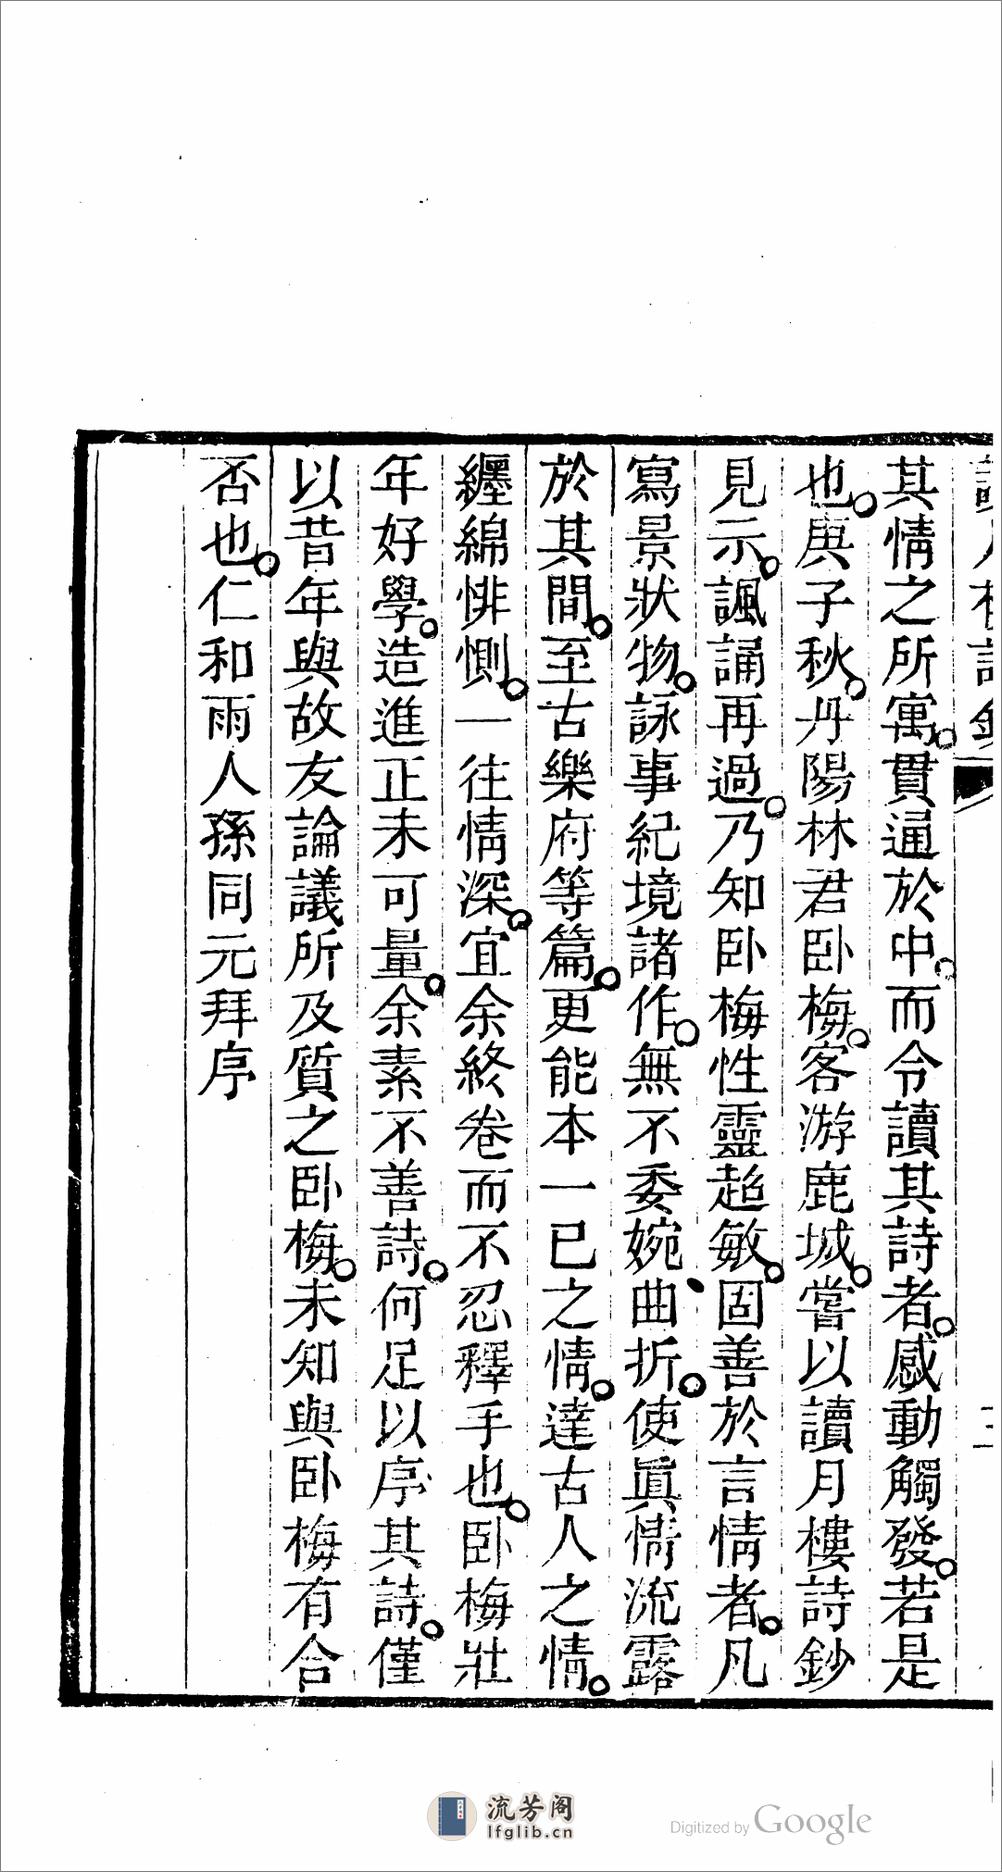 其情之所寓。貫通於中。而令讀其詩者。感動觸發。若是
也。庚子秋。丹陽林君卧梅。客游鹿城。嘗以讀月樓詩鈔
見示。諷誦再過。乃知卧梅性靈超敏。固善於言情者。凡
寫景狀物。詠事紀境諸作。無不委婉、曲折。使眞情流露
於其間。至古樂府等篇。更能本一已之情。達古人之情。
纏綿悱惻。一往情深。宜余終卷而不忍釋手也。卧梅壯
年好學。造進正未可量。余素不善詩。何足以序其詩。僅
以昔年與故友論議所及質之卧梅。未知與卧梅有合
否也。仁和雨人孫同元拜序
流芳阁
lfglib.cn
Digitized by Google